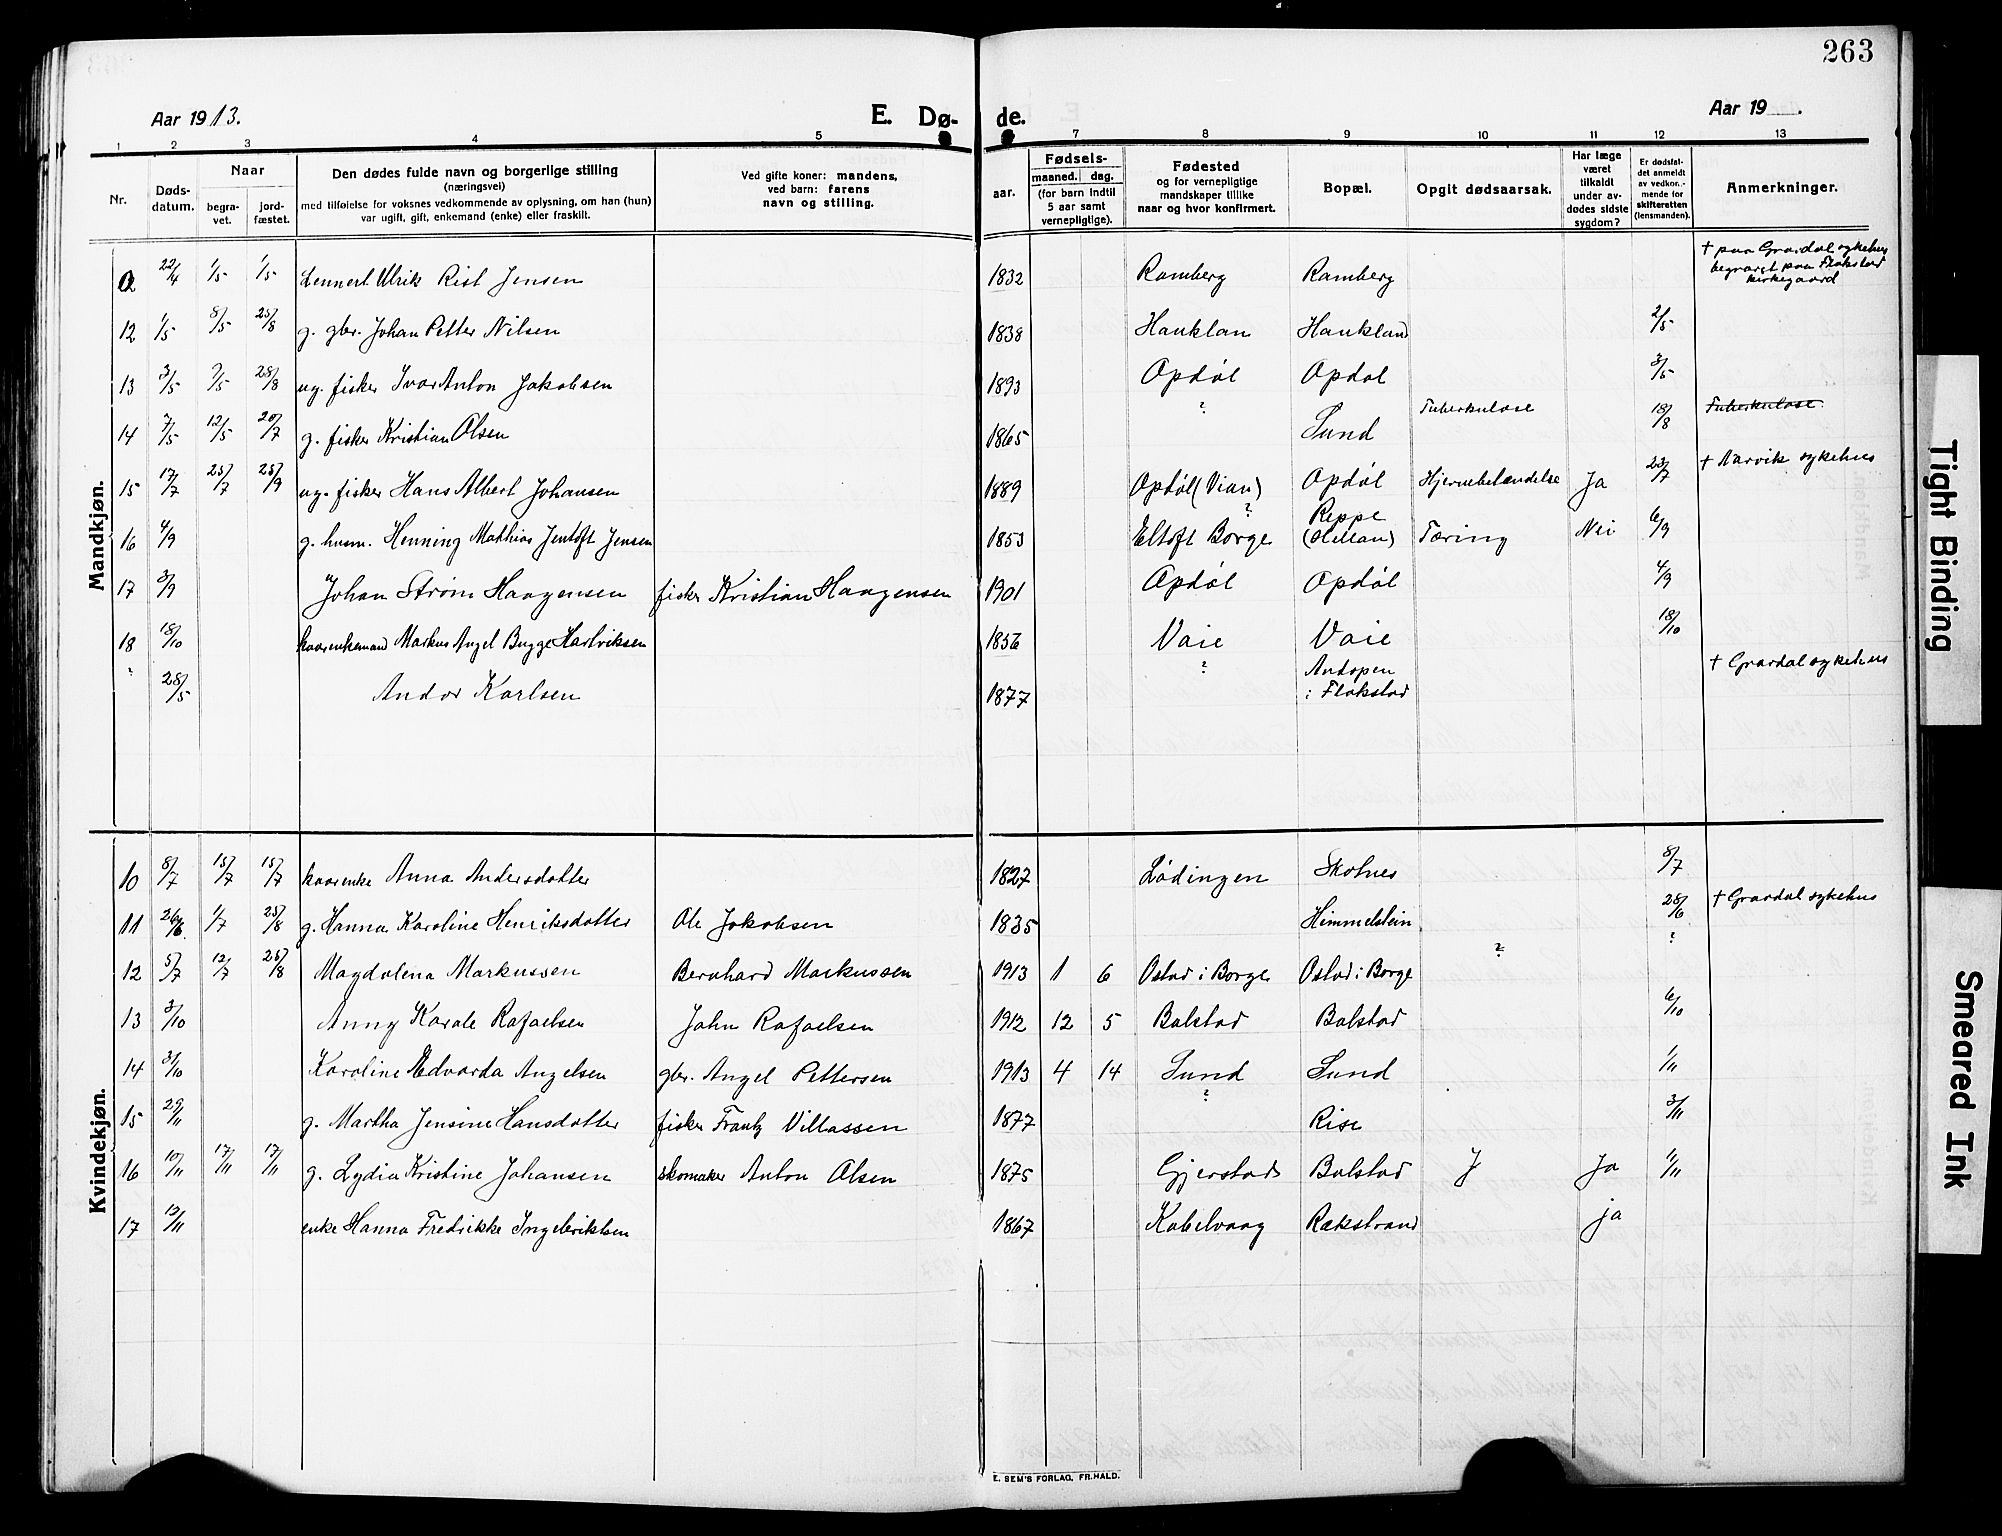 263
Aar 1913.
E. Dø- de.
Aar 19 .
1 2 3 4 5 7 8 9 10 11 12 13
Nr.
Døds-
datum.
Naar
begra-
vet.
jord-
fæstet.
Den dødes fulde navn og borgerlige stilling
(næringsvei)
med tilføielse for voksnes vedkommende av oplysning, om han (hun)
var ugift, gift, enkemand (enke) eller fraskilt.
Ved gifte koner: mandens,
ved barn: farens
navn og stilling.
aar.
Fødsels-
maaned. dag.
(for barn indtil
5 aar samt
vernepligtige).
Fødested
og for vernepligtige
mandskaper tillike
naar og hvor konfirmert.
Bopæl.
Opgit dødsaarsak.
Har læge
været
tilkaldt
under av-
dødes sidste
sygdom?
Er dødsfal-
det anmeldt
av vedkom-
mende for
skifteretten
(lensmanden).
Anmerkninger.
Mandkjøn.
22/4 1/5 1/5 Lennert Ulrik Rist Jensen 1832 Ramberg Ramberg † paa Gravdal sykehus
begravet paa Flakstad
kirkegaard
12 1/5 8/5 25/8 g. gbr. Johan Petter Nilsen 1838 Hauklan Haukland 2/5
13 3/5 7/5 28/8 ug. fisker Ivar Anton Jakobsen 1893 Opdøl Opdøl 3/5
14 7/5 12/5 20/7 g. fisker Kristian Olsen 1865 ? Sund Tuberkulose 18/8 Tuberkulose.
15 17/7 25/7 25/9 ug. fisker Hans Albert Johansen 1889 Opdøl (Vian) Opdøl Hjernebetændelse Ja 23/7 † Narvik sykehus
16 4/9 g. husm. Henning Mathias Jentoft Jensen 1853 ? Eltoft Borge Reppe
(Hellan) Tæring Nei 6/9
17 3/9 Johan Strøm Haagensen fisker Kristian Haagensen 1901 Opdøl Opdøl 4/9
18 18/10 kaarenkemand Markus Angel Bugge Hartviksen 1856 Vaie Vaie 18/10
? 28/5 Andor Karlsen 1877 ? Andopen
i Flakstad † Gravdal sykehus
Kvindekjøn.
10 8/7 15/7 15/7 kaarenke Anna Andersdatter 1827 Lødingen Skotnes 8/7
11 26/6 1/7 25/8 g. Hanna Karoline Henriksdatter Ole Jakobsen 1835 Himmelstein 28/6 † Gravdal sykehus
12 5/7 12/7 25/8 Magdalena Markussen Bernhard Markussen 1913 1 6 Ostad i Borge Ostad i Borge ? ?
13 3/10 Anny Karole Rafaelsen John Rafaelsen 1912 12 5 Balstad Balstad 6/10
14 31/10 Karoline Edvarda Angelsen gbr. Angel Pettersen 1913 4 14 Sund Sund 1/11
15 29/11 g. Martha Jensine Hansdatter fisker Frantz Villassen 1877 ? Rise 3/11
16 10/11 17/11 17/11 g. Lydia Kristine Johansen skomaker Anton Olsen 1875 Gjerstad Balstad J Ja 11/11
17 12/11 enke Hanna Fredrikke Ingebriktsen 1867 Kabelvaag Rækstrand ja
E. SEM'S FORLAG, FR.HALD.
Tight Binding
Smeared Ink